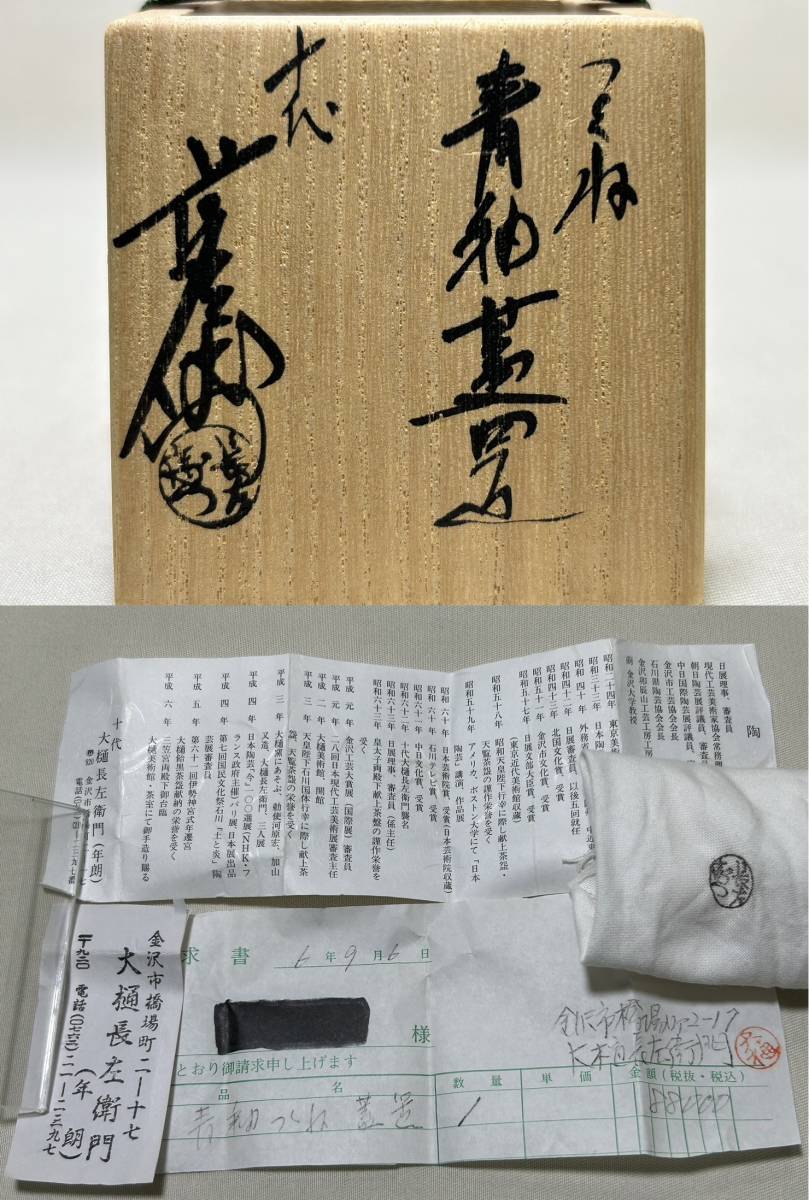 つくね
青釉蓋置
十代
長左衛門
陶
日展理事、審査員
現代工芸美術家協会常務理
朝日陶芸展評議員、審査
中日国際陶芸展評議員、
金沢市工芸協会会長
石川県陶芸協会会長
金沢卯辰山工芸工房
金沢大学教授
昭和二十四年 東京美
昭和三十三年 日本陶
昭和四十一年 外務省
昭和四十二年 日展審査員、以後五回就任
昭和四十三年 北国文化賞 受賞
昭和五十一年 金沢市文化賞 受賞
昭和五十七年 日展文部大臣賞 受賞
(東京近代美術館収蔵)
昭和五十八年 昭和天皇陛下行幸に際し献上茶器・
天覧茶盌の謹作栄誉を受く
昭和五十九年 アメリカ、ボストン大学にて「日本
陶芸」講演、作品展
昭和六十年 日本芸術院賞 受賞(日本芸術院収蔵)
昭和六十年 石川テレビ賞 受賞
昭和六十一年 中日文化賞 受賞
昭和六十二年 十代大樋長左衛門襲名
昭和六十三年 日展理事、審査員(係主任)
昭和六十三年 皇太子両殿下献上茶盌の謹作栄誉を
受く
平成元年 金沢工芸大賞展(国際展)審査員
平成元年 二八回日本現代工芸美術展審査主任
平成二年 大樋美術館、開館
平成三年 天皇陛下石川国体行幸に際し献上茶
盌、天覧茶盌の栄誉を受く
平成三年 大樋窯にあそぶ、勅使河原宏、加山
又造、大樋長左衛門、三人展
平成四年 日本陶芸「今」一〇〇選展(NHK・フ
ランス政府主催)パリ展、日本展出品
平成四年 第七回国民文化祭石川「土と炎」陶
芸展審査員
平成五年 第六十一回伊勢神宮式年遷宮
大樋飴黒茶盌献納の栄誉を受く
平成六年 三笠宮両殿下御台臨
大樋美術館、茶室にて御手造り賜る
十代
大樋長左衛門(年朗)
金沢市
電話
金沢市橋場町二ー十七
大樋長左衛門
(年朗)
〒九二〇 電話(〇七六二)二一ー二三九七
求書
6年9月6日
様
とおり御請求申し上げます
金沢市橋場町2-17
大樋長左衛門
品名
数量
単価
金額(税抜・税込)
青釉つくね 蓋置
1
88000